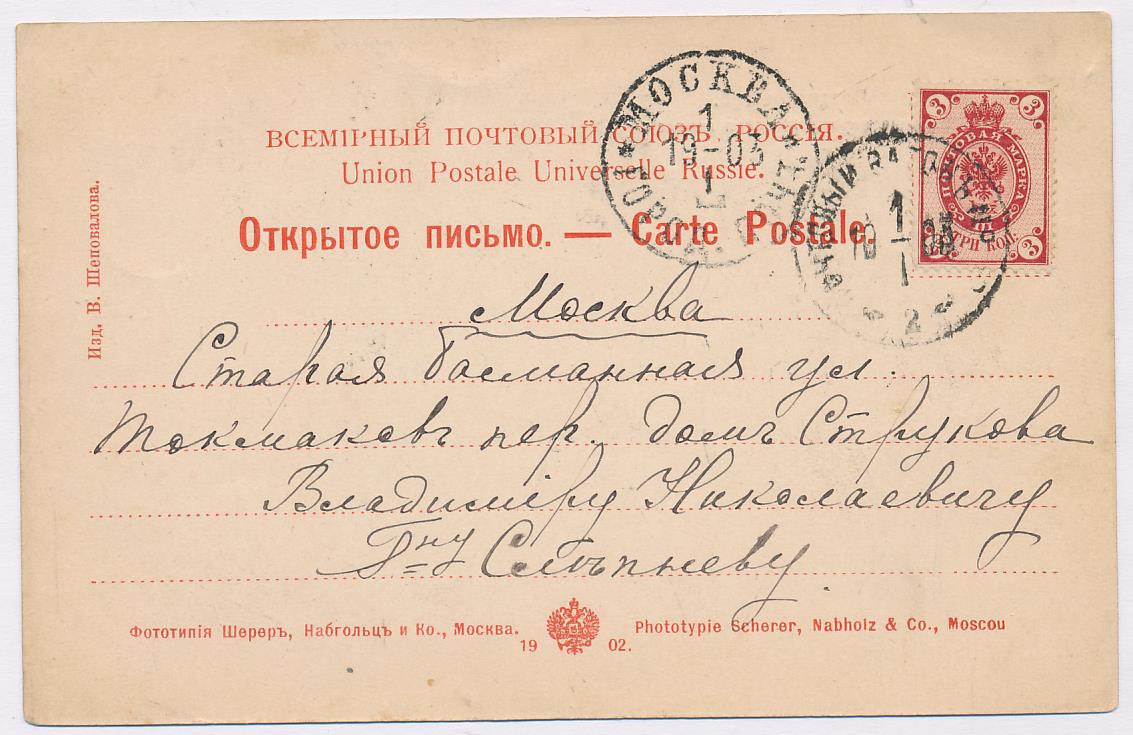 ВСЕМІРНЫЙ ПОЧТОВЫЙ СОЮЗЪ. РОССІЯ.
Union Postale Universelle Russie.
Открытое письмо. — Carte Postale.
МОСКВА
1
19-03
I
ГОРОД. ПОЧТА
1
I
2
3
3
ПОЧТОВАЯ МАРКА
ТРИ КОП.
3
3
Изд. В. Шеповалова.
Москва
Старая Басманная ул.
Токмаковъ пер. домъ Струкова
Владиміру Николаевичу
Гну Слѣпневу
Фототипія Шереръ, Набгольцъ и Ко., Москва.
1902.
Phototypie Scherer, Nabholz & Co., Moscou